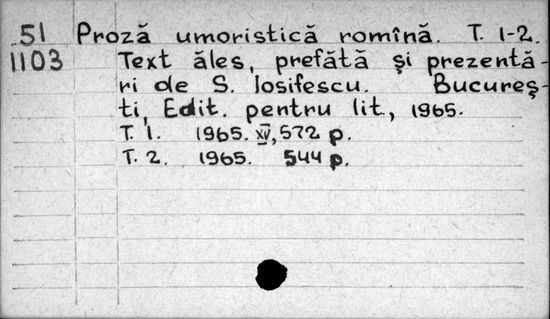 51 Proză umoristică romînă. T. 1-2.
1103 Text ăles, prefătă și prezentă-
ri de S. Iosifescu. Bucureș-
ti, Edit. pentru lit., 1965.
T. 1. 1965. XV, 572 p.
T. 2. 1965. 544 p.